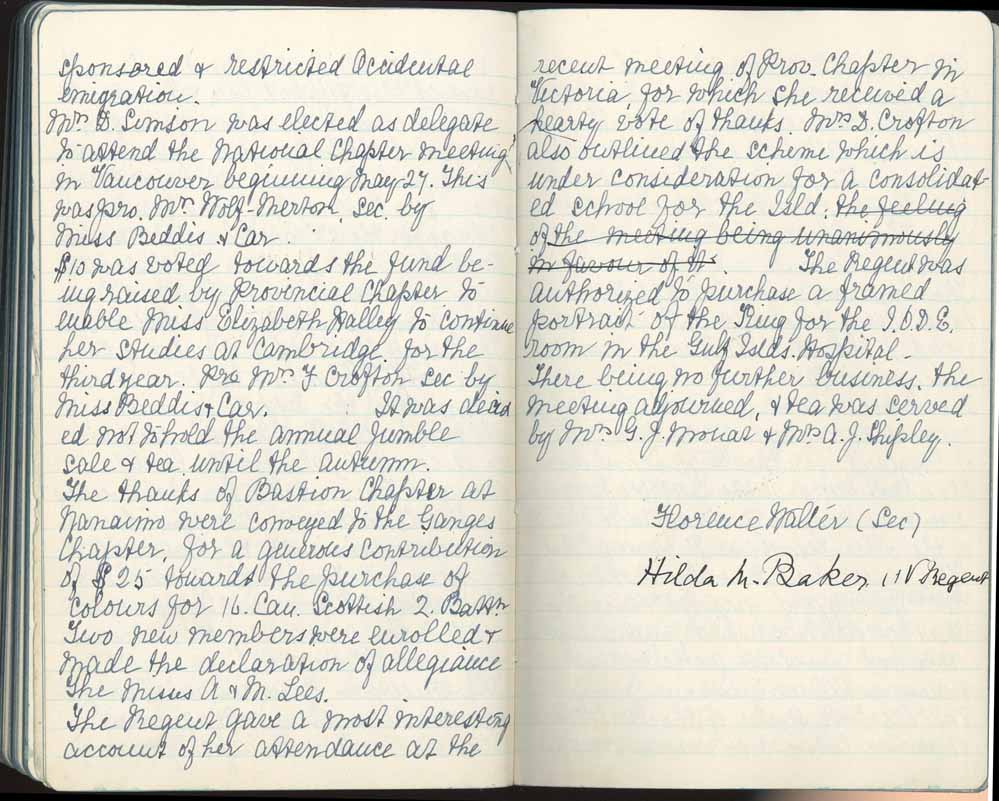 sponsored & restricted Occidental
emigration.
Mrs B. Simson was elected as delegate
to attend the National Chapter meeting
in Vancouver beginning May 27. This
was pro. Mrs Wolf-Merton, Sec. by
Miss Beddis & Car.
$10 was voted towards the fund be-
ing raised by Provincial Chapter to
enable Miss Elizabeth Halley to continue
her studies at Cambridge for the
third year. Pro Mrs F Crofton Sec by
Miss Beddis & Car. It was decid
ed not to hold the annual jumble
sale & tea until the autumn.
The thanks of Bastion Chapter at
Nanaimo were conveyed to the Ganges
Chapter, for a generous contribution
of $25 towards the purchase of
colours for 16. Can. Scottish 2. Battn
Two new members were enrolled &
made the declaration of allegiance
The Misses A & M. Lees.
The Regent gave a most interesting
account of her attendance at the
recent meeting of Prov. Chapter in
Victoria, for which she received a
hearty vote of thanks. Mrs D. Crofton
also outlined the scheme which is
under consideration for a consolidat-
ed school for the Isld. the feeling
of the meeting being unanimously
in favour of it. The Regent was
authorized to purchase a framed
portrait of the King for the I.O.D.E.
room in the Gulf Islds. Hospital.
There being no further business, the
meeting adjourned, & tea was served
by Mrs G. J. Mouat & Mrs A. J. Shipley.
Florence Walter (Sec)
Hilda M. Baker, Regent